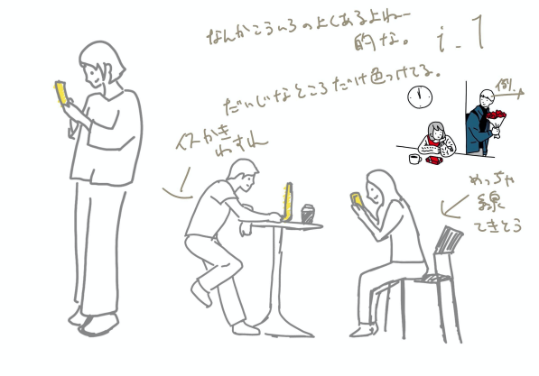 なんかこういうのよくあるよねー
的な。
i.1
だいじなところだけ色つけてる。
例.
イスかき
わすれ
めっちゃ
線
てきとう